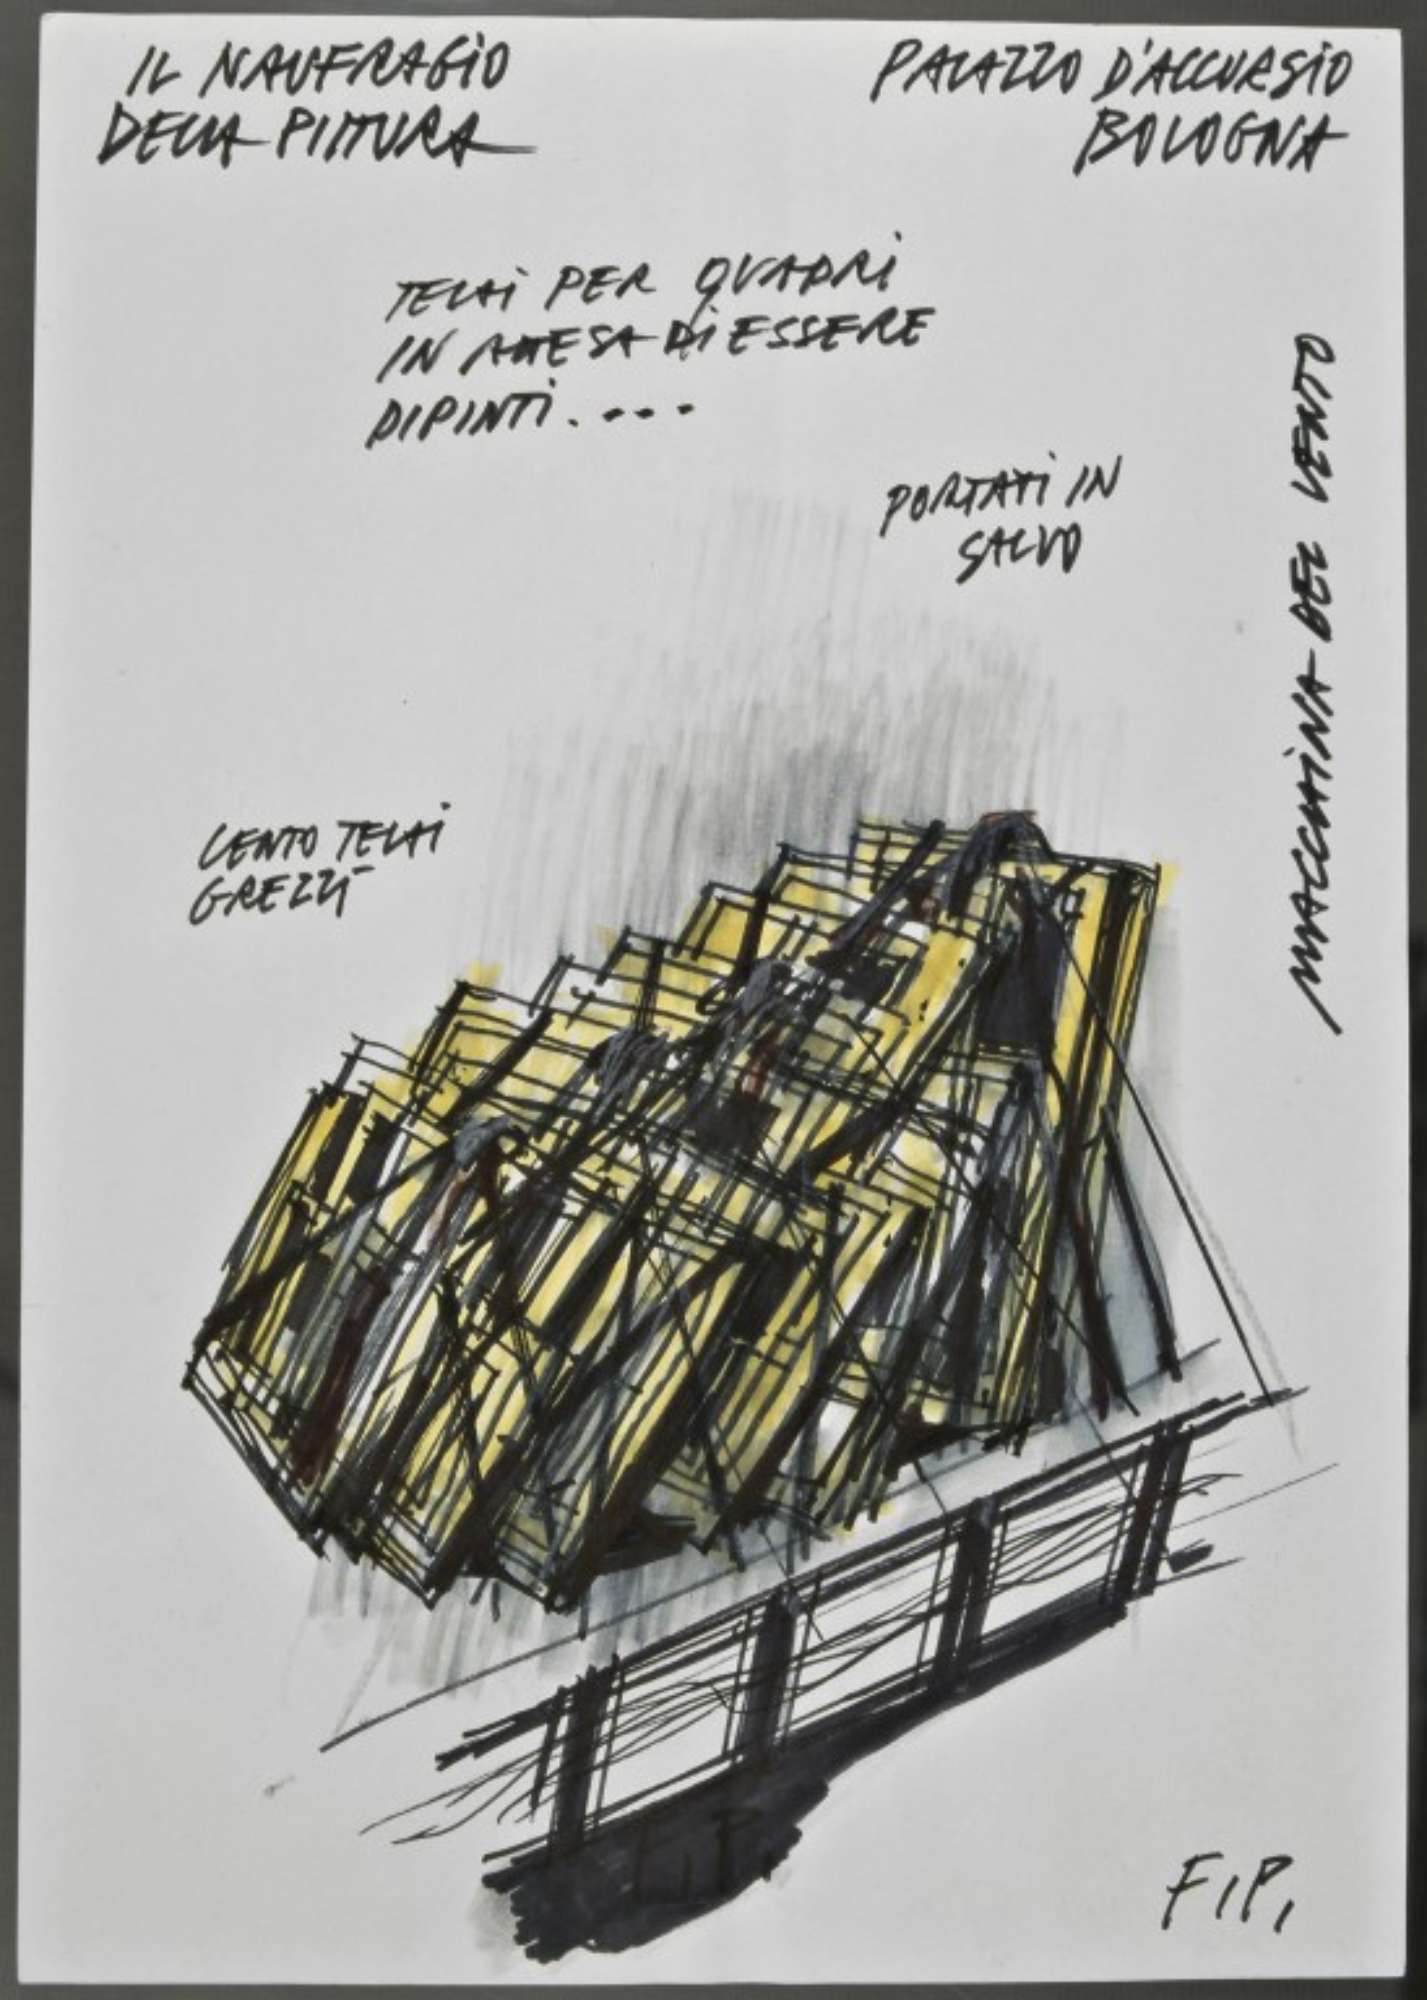 IL NAUFRAGIO
DELLA PITTURA
PALAZZO D'ACCURSIO
BOLOGNA
TELAI PER QUADRI
IN ATTESA DI ESSERE
DIPINTI....
PORTATI IN
SALVO
MACCHINA DEL VENTO
CENTO TELAI
GREZZI
F.P.